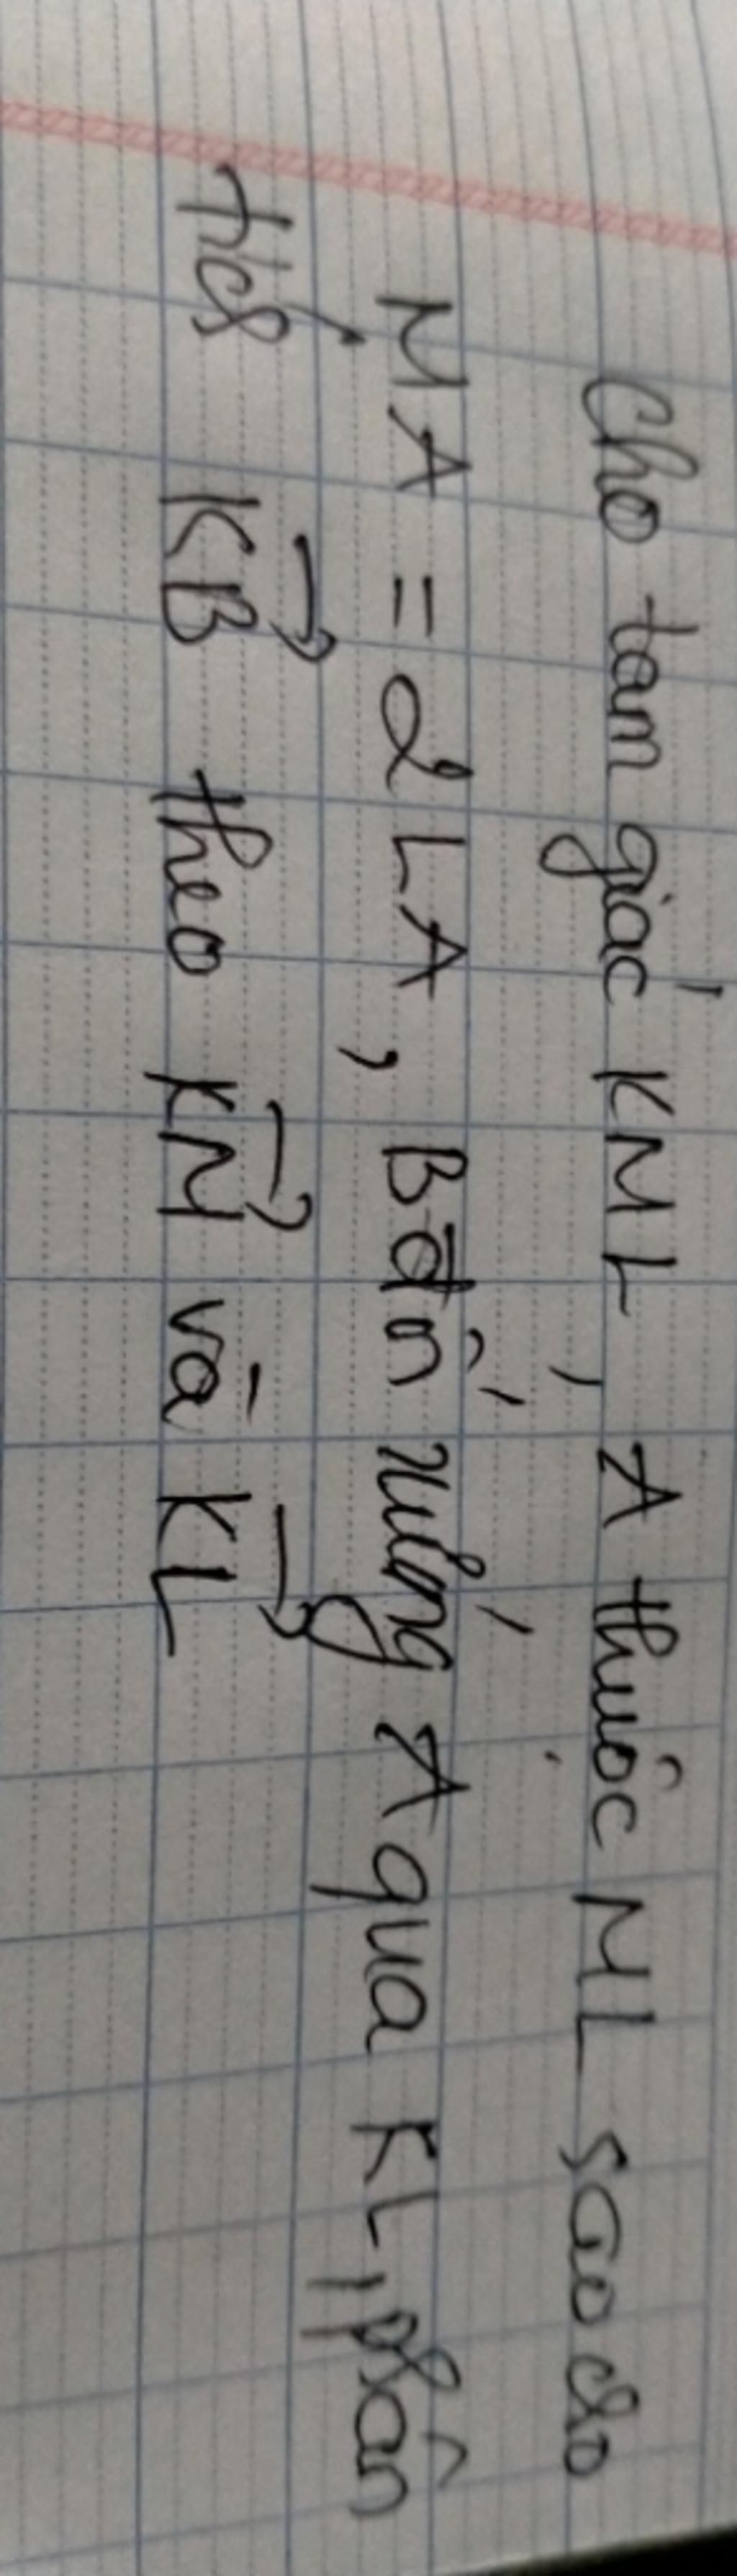 Cho tam giác KML, A thuộc ML sao cho
MA = 2LA, B đ/n xứng A qua KL, phân
tích KB theo KM và KL